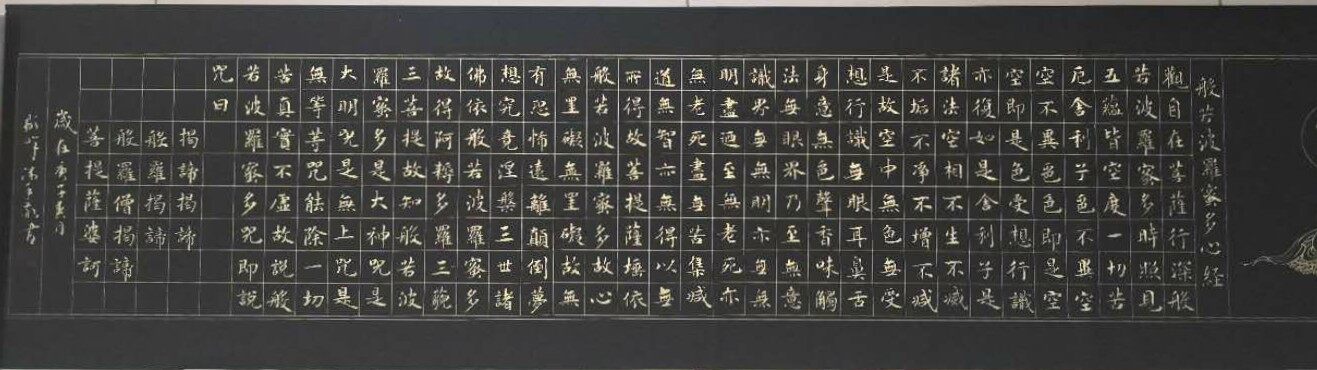 般若波羅蜜多心経
觀自在菩薩行深般
若波羅蜜多時照見
五蘊皆空度一切苦
厄舍利子色不異空
空不異色色即是空
空即是色受想行識
亦復如是舍利子是
諸法空相不生不滅
不垢不淨不增不減
是故空中無色無受
想行識無眼耳鼻舌
身意無色聲香味觸
法無眼界乃至無意
識界無無明亦無無
明盡迺至無老死亦
無老死盡無苦集滅
道無智亦無得以無
所得故菩提薩埵依
般若波羅蜜多故心
無罣礙無罣礙故無
有恐怖遠離顛倒夢
想究竟涅槃三世諸
佛依般若波羅蜜多
故得阿耨多羅三藐
三菩提故知般若波
羅蜜多是大神咒是
大明咒是無上咒是
無等等咒能除一切
苦真實不虛故說般
若波羅蜜多咒即說
咒曰
揭諦揭諦
般羅揭諦
般羅僧揭諦
菩提薩婆訶
歲在庚子夏月
書